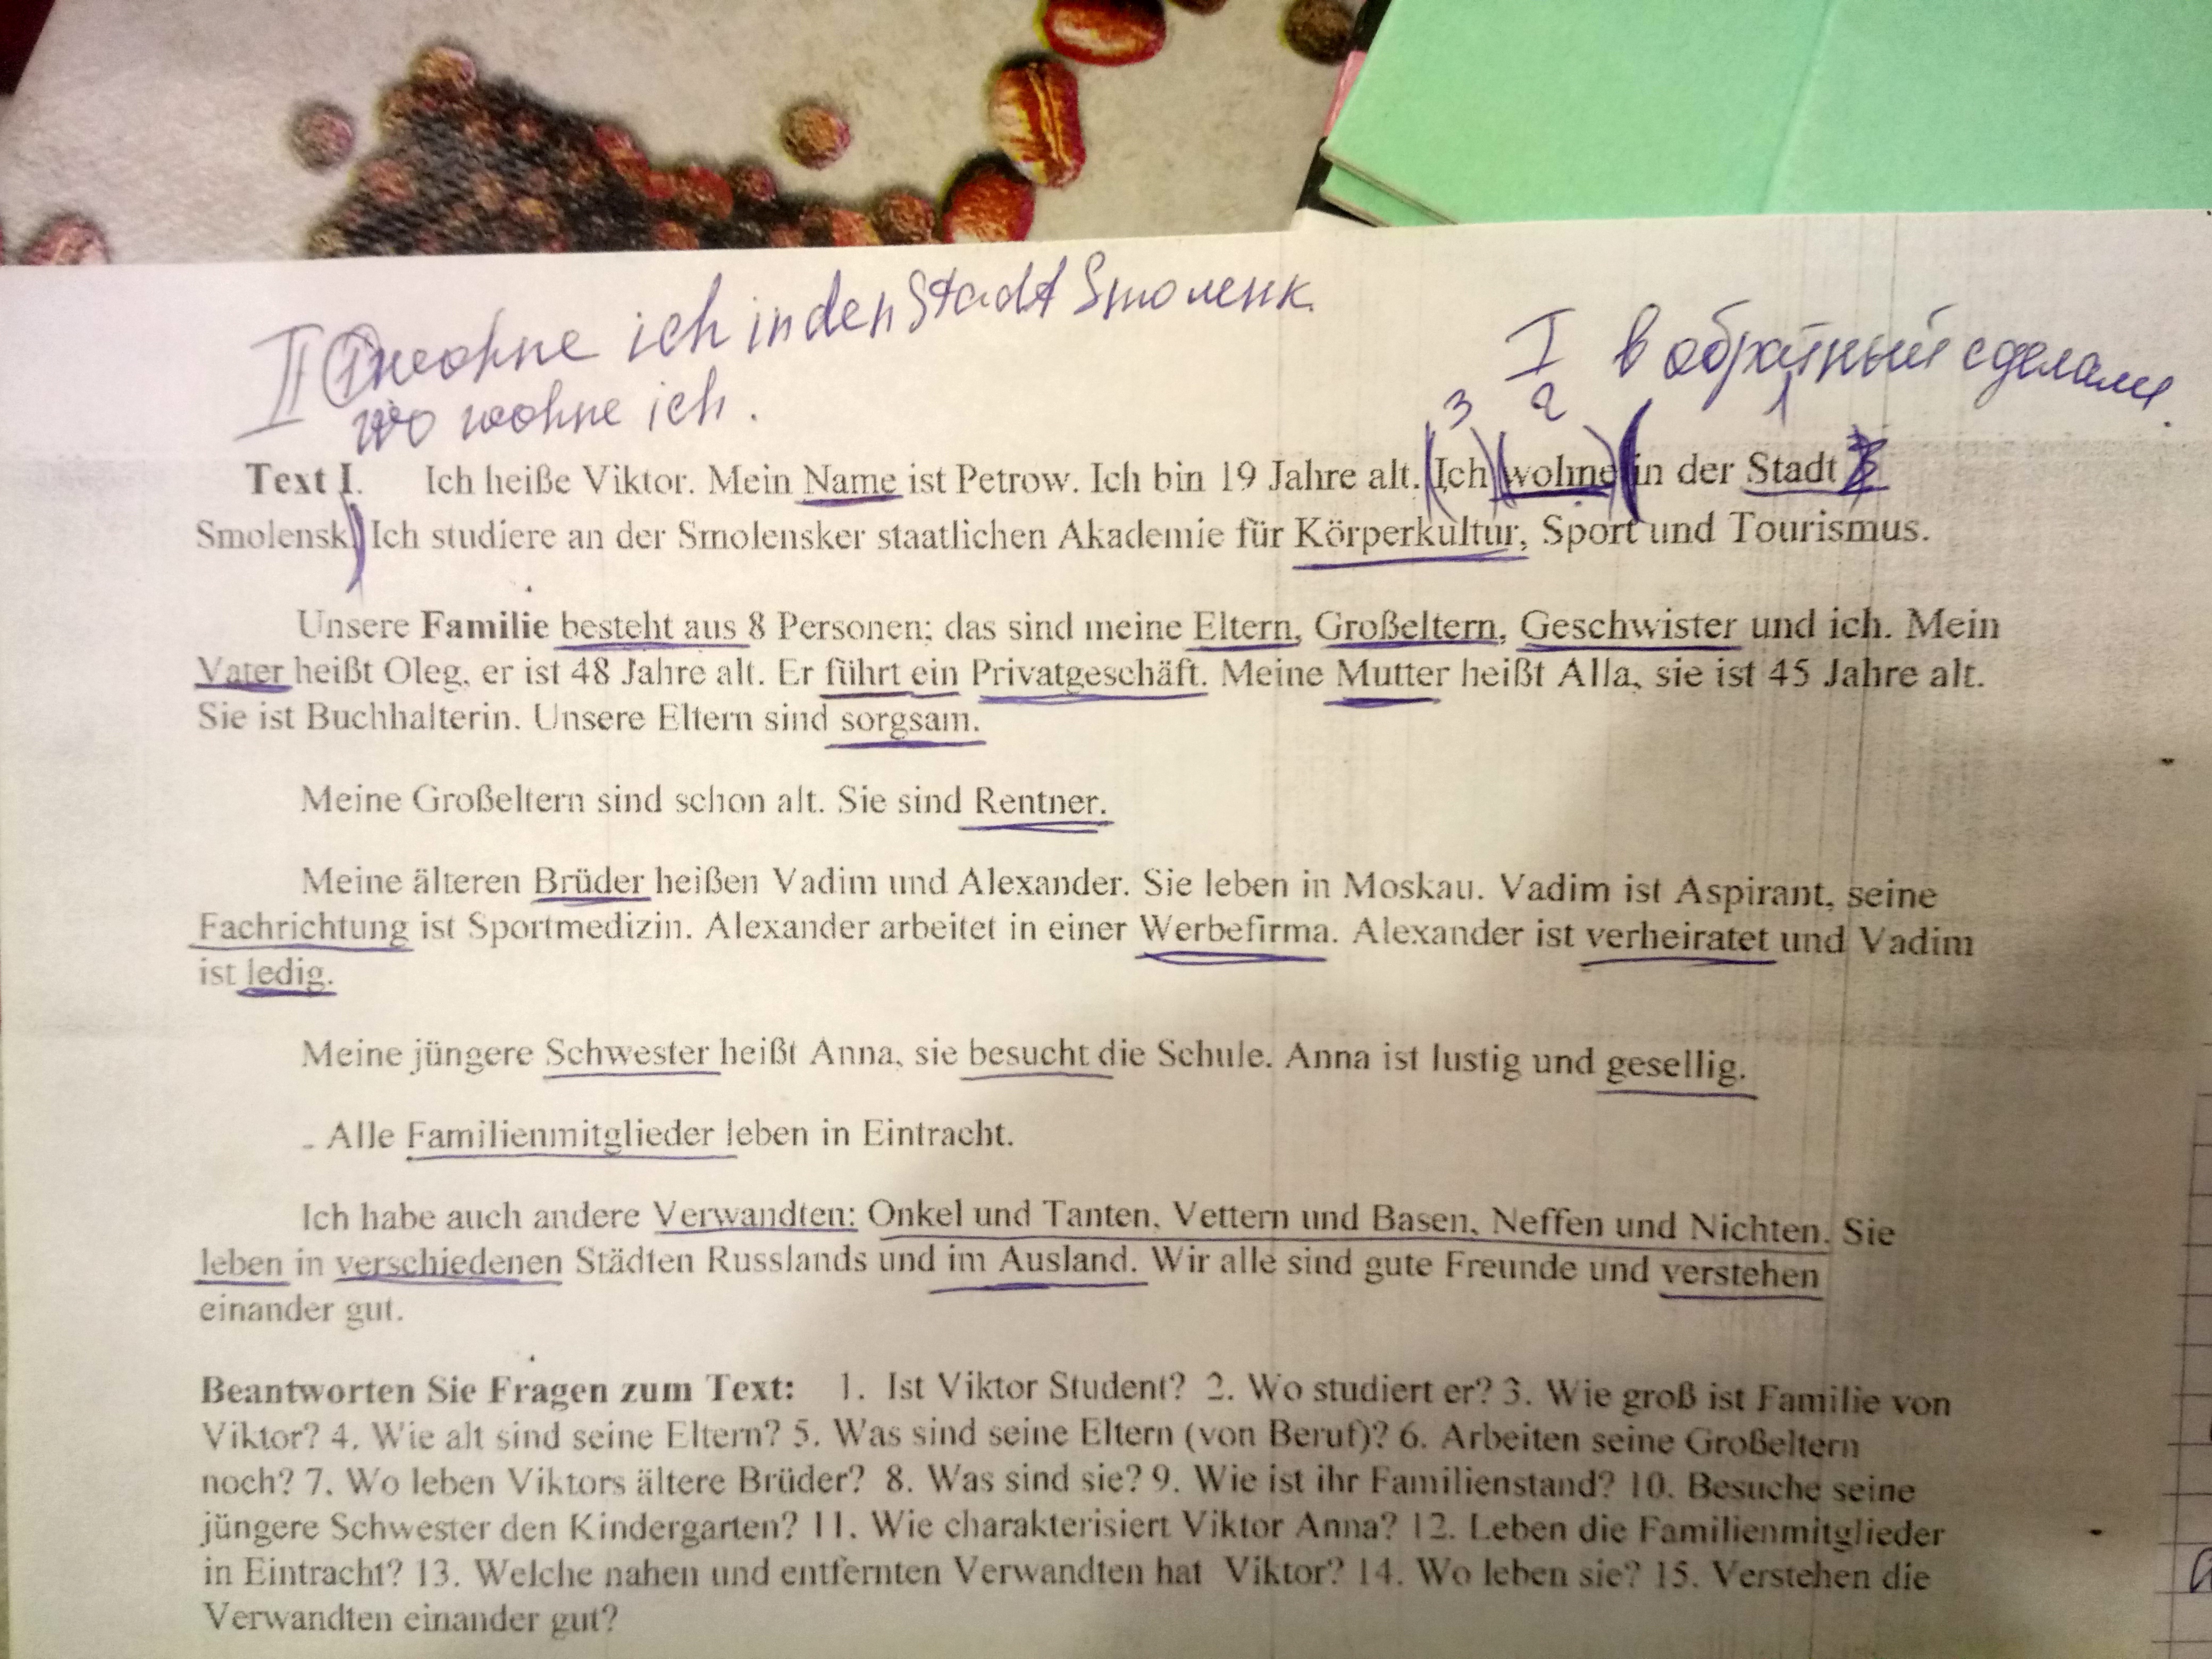 II ① wohne ich in den Stadt Smolensk.
wo wohne ich.
I в обратный сделали.
3 2 1
Text I. Ich heiße Viktor. Mein Name ist Petrow. Ich bin 19 Jahre alt. (Ich) (wohne) (in der Stadt
Smolensk.) Ich studiere an der Smolensker staatlichen Akademie für Körperkultur, Sport und Tourismus.
Unsere Familie besteht aus 8 Personen: das sind meine Eltern, Großeltern, Geschwister und ich. Mein
Vater heißt Oleg, er ist 48 Jahre alt. Er führt ein Privatgeschäft. Meine Mutter heißt Alla, sie ist 45 Jahre alt.
Sie ist Buchhalterin. Unsere Eltern sind sorgsam.
Meine Großeltern sind schon alt. Sie sind Rentner.
Meine älteren Brüder heißen Vadim und Alexander. Sie leben in Moskau. Vadim ist Aspirant, seine
Fachrichtung ist Sportmedizin. Alexander arbeitet in einer Werbefirma. Alexander ist verheiratet und Vadim
ist ledig.
Meine jüngere Schwester heißt Anna, sie besucht die Schule. Anna ist lustig und gesellig.
Alle Familienmitglieder leben in Eintracht.
Ich habe auch andere Verwandten: Onkel und Tanten, Vettern und Basen, Neffen und Nichten. Sie
leben in verschiedenen Städten Russlands und im Ausland. Wir alle sind gute Freunde und verstehen
einander gut.
Beantworten Sie Fragen zum Text: 1. Ist Viktor Student? 2. Wo studiert er? 3. Wie groß ist Familie von
Viktor? 4. Wie alt sind seine Eltern? 5. Was sind seine Eltern (von Beruf)? 6. Arbeiten seine Großeltern
noch? 7. Wo leben Viktors ältere Brüder? 8. Was sind sie? 9. Wie ist ihr Familienstand? 10. Besuche seine
jüngere Schwester den Kindergarten? 11. Wie charakterisiert Viktor Anna? 12. Leben die Familienmitglieder
in Eintracht? 13. Welche nahen und entfernten Verwandten hat Viktor? 14. Wo leben sie? 15. Verstehen die
Verwandten einander gut?